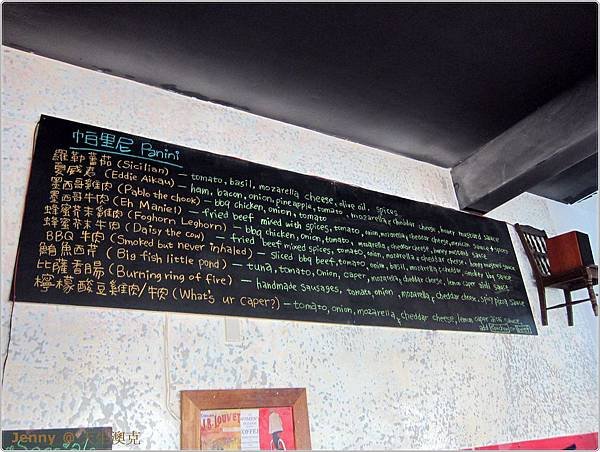 帕里尼 Panini
羅勒蕃茄 (Sicilian) — tomato, basil, mozarella cheese, olive oil, spices
夏威夷 (Eddie Aikau) — ham, bacon, onion, pineapple, tomato, mozarella, cheddar cheese, honey mustard sauce
墨西哥雞肉 (Pablo the chook) — bbq chicken, onion, tomato
墨西哥牛肉 (Eh Maniel) — fried beef mixed with spices, tomato, onion, mozarella, cheddar cheese
蜂蜜芥末雞肉 (Foghorn Leghorn) — bbq chicken, onion, tomato, mozarella, cheddar cheese, honey mustard sauce
蜂蜜芥末牛肉 (Daisy the cow) — fried beef mixed spices, tomato, onion, mozarella, cheddar cheese, honey mustard sauce
BBQ 牛肉 (Smoked but never inhaled) — sliced bbq beef, tomato, onion, basil, mozarella, cheddar cheese, smokey bbq sauce
鮪魚西市 (Big fish little pond) — tuna, tomato, onion, caper, mozarella, cheddar cheese, lemon caper sauce
比薩香腸 (Burning ring of fire) — handmade sausages, tomato, onion, mozarella, cheddar cheese, spicy pizza sauce
檸檬酸豆雞肉/牛肉 (What's ur caper?) — tomato, onion, mozarella, cheddar cheese, lemon caper sauce
add
Jenny @ 澳克